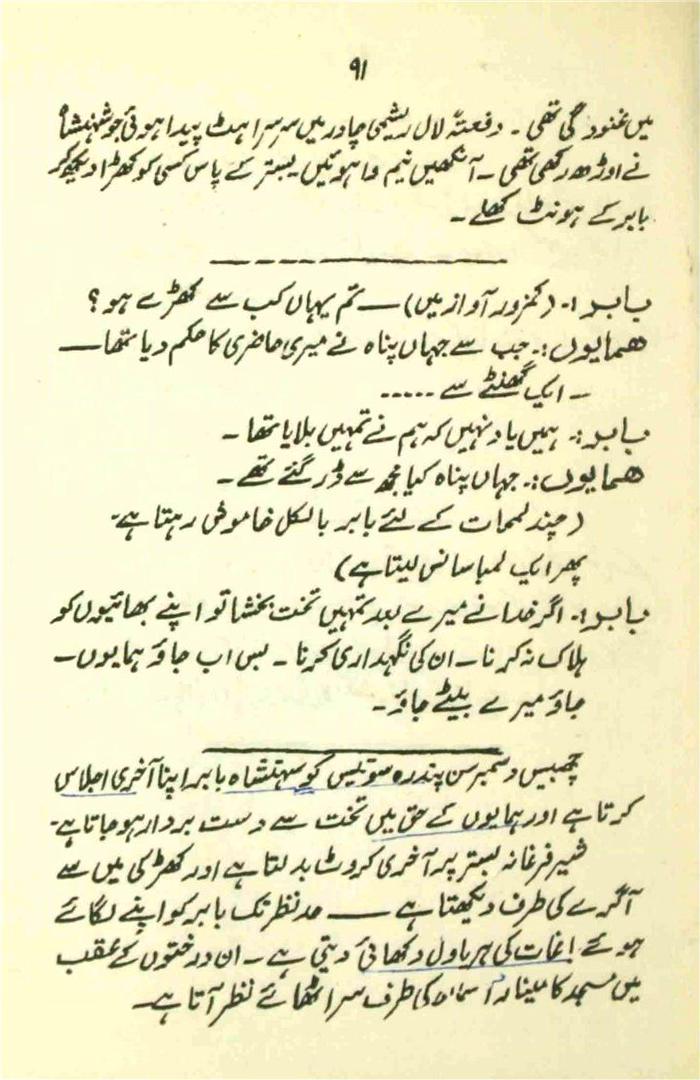 ۹۱
میں غنودگی تھی ۔ دفعتہً لال ریشمی چادر میں سرسراہٹ پیدا ہوئی جو شہنشاہ
نے اوڑھ رکھی تھی ۔ آنکھیں نیم وا ہوئیں بستر کے پاس کسی کو کھڑا دیکھ کر
بابر کے ہونٹ کھلے ۔
بابر :۔ (کمزور آواز میں) ــــ تم یہاں کب سے کھڑے ہو ؟
ھمایوں :۔ جب سے جہاں پناہ نے میری حاضری کا حکم دیا تھا ــــ
ــ ایک گھنٹے سے .....
بابر :۔ ہمیں یاد نہیں کہ ہم نے تمہیں بلایا تھا ۔
ھمایوں :۔ جہاں پناہ کیا مجھ سے ڈر گئے تھے ۔
(چند لمحات کے لئے بابر بالکل خاموش رہتا ہے۔
پھر ایک لمبا سانس لیتا ہے)
بابر :۔ اگر خدا نے میرے بعد تمہیں تخت بخشا تو اپنے بھائیوں کو
ہلاک نہ کرنا ۔ ان کی نگہداری کرنا ۔ بس اب جاؤ ہمایوں ۔
جاؤ میرے بیٹے جاؤ ۔
چھبیس دسمبر سن پندرہ سو تیس کو شہنشاہ بابر اپنا آخری اجلاس
کرتا ہے اور ہمایوں کے حق میں تخت سے دست بردار ہو جاتا ہے۔
شیر فرغانہ بستر پر آخری کروٹ بدلتا ہے اور کھڑکی میں سے
آگرے کی طرف دیکھتا ہے ــــ حد نظر تک بابر کو اپنے لگائے
ہوئے باغات کی ہریاول دکھائی دیتی ہے ۔ ان درختوں کے عقب
میں مسجد کا مینار آسمان کی طرف سر اٹھائے نظر آتا ہے ۔